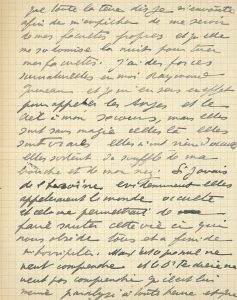 que toute la terre disje m'envoûte
afin de m'empêcher de me servir
de mes facultés propres et je
me la nuit pour tuer
mes facultés. J'ai des forces
surnaturelles en moi Raymond
Queneau et j'ai en sens effet
pour appeler les Anges et le
ciel à mon secours, mais elles
sont sans magie elles
sont vraies elles n'ont rien d'occulte
elles sortent du souffle de ma
bouche et de mon nez. Si j'avais
de l'héroïne évidemment elles
appelleraient le monde occulte
et cela me permettrait de
faire sauter cette vie ci qui
nous obsède tous et a fini de
m'horripiler. Mais personne ne
veut comprendre et ne
veut pas comprendre qu'il est lui
même paralysé à toute heure